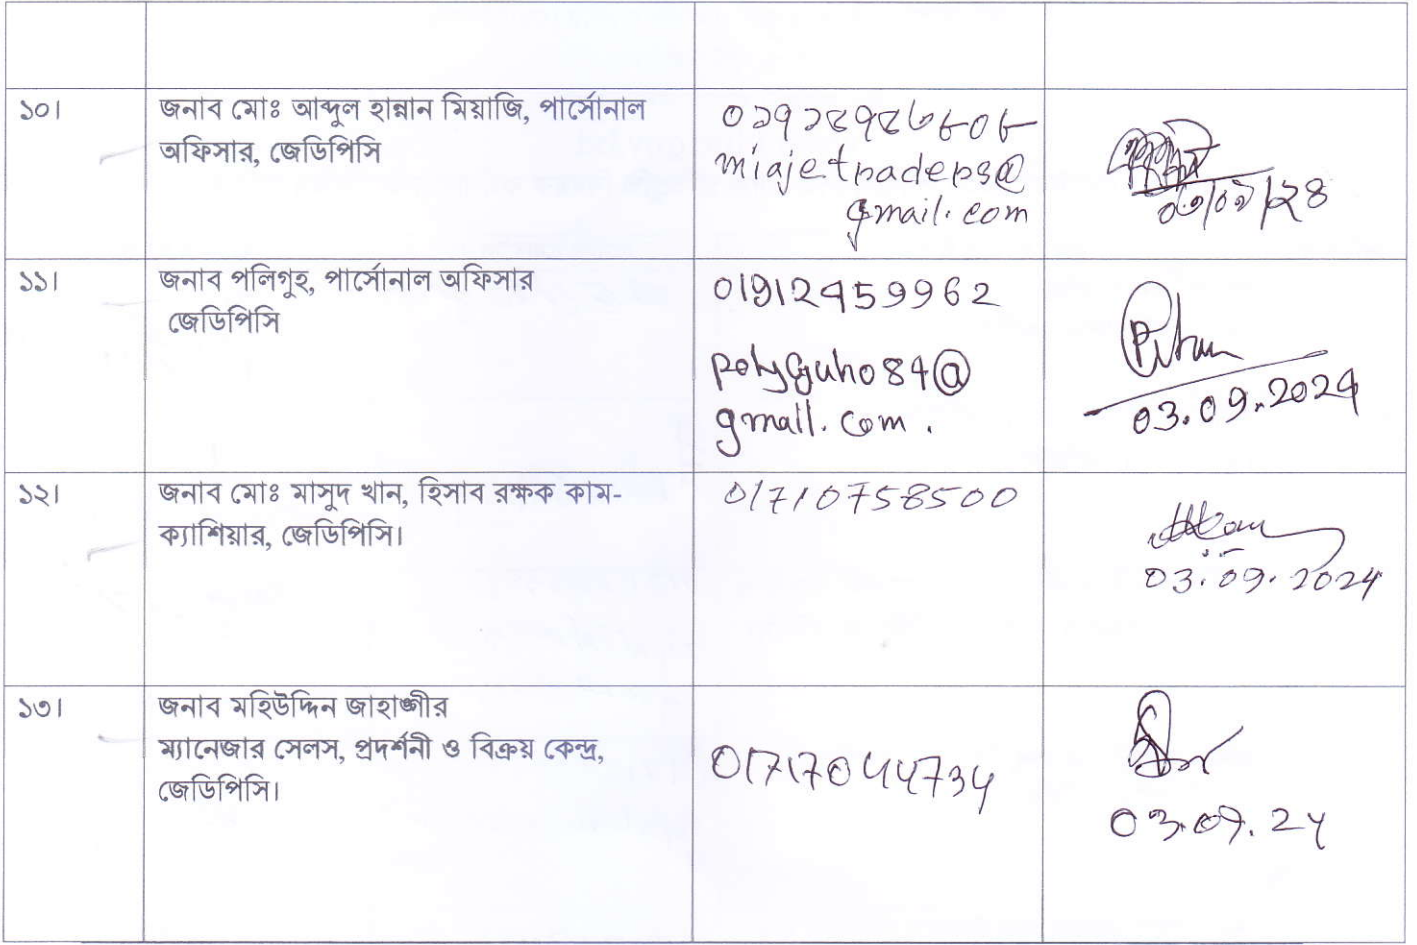 ১০।
জনাব মোঃ আব্দুল হান্নান মিয়াজি, পার্সোনাল
অফিসার, জেডিপিসি
miajetraders@
gmail.com
০৩/০৯/২৪
১১।
জনাব পলিগুহ, পার্সোনাল অফিসার
জেডিপিসি
01912459962
polyguho84@
gmail.com.
03.09.2024
১২।
জনাব মোঃ মাসুদ খান, হিসাব রক্ষক কাম-
ক্যাশিয়ার, জেডিপিসি।
01710758500
03.09.2024
১৩।
জনাব মহিউদ্দিন জাহাঙ্গীর
ম্যানেজার সেলস, প্রদর্শনী ও বিক্রয় কেন্দ্র,
জেডিপিসি।
01717044734
03.09.24